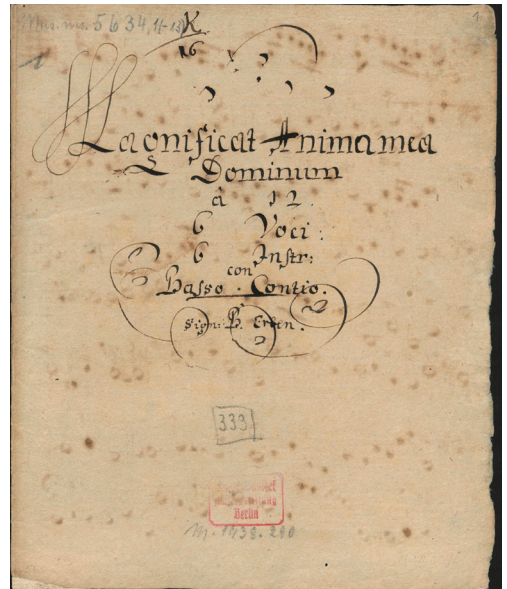 Mus. ms. 5634,
K
16
1
Magnificat Anima mea
Dominum
à 12.
6 Voci:
6 Instr:
con
Basso. Contio.
Sign: B. Erben.
333
Berlin